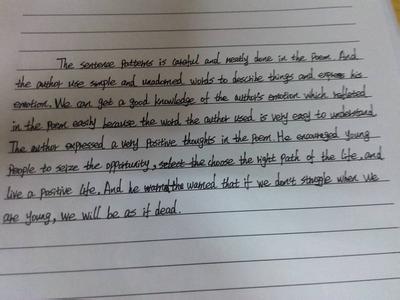 The sentence patterns is careful and neatly done in the Poem. And
the author use simple and unadorned words to describe things and express his
emotion. We can get a good knowledge of the author's emotion which reflected
in the Poem easily because the word the author used is very easy to understand
The author expressed a very Positive thoughts in the Poem. He encouraged Young
People to seize the opportunity, select the choose the right path of the life, and
live a positive life. And he warned that if we don't struggle when we
are young, we will be as if dead.